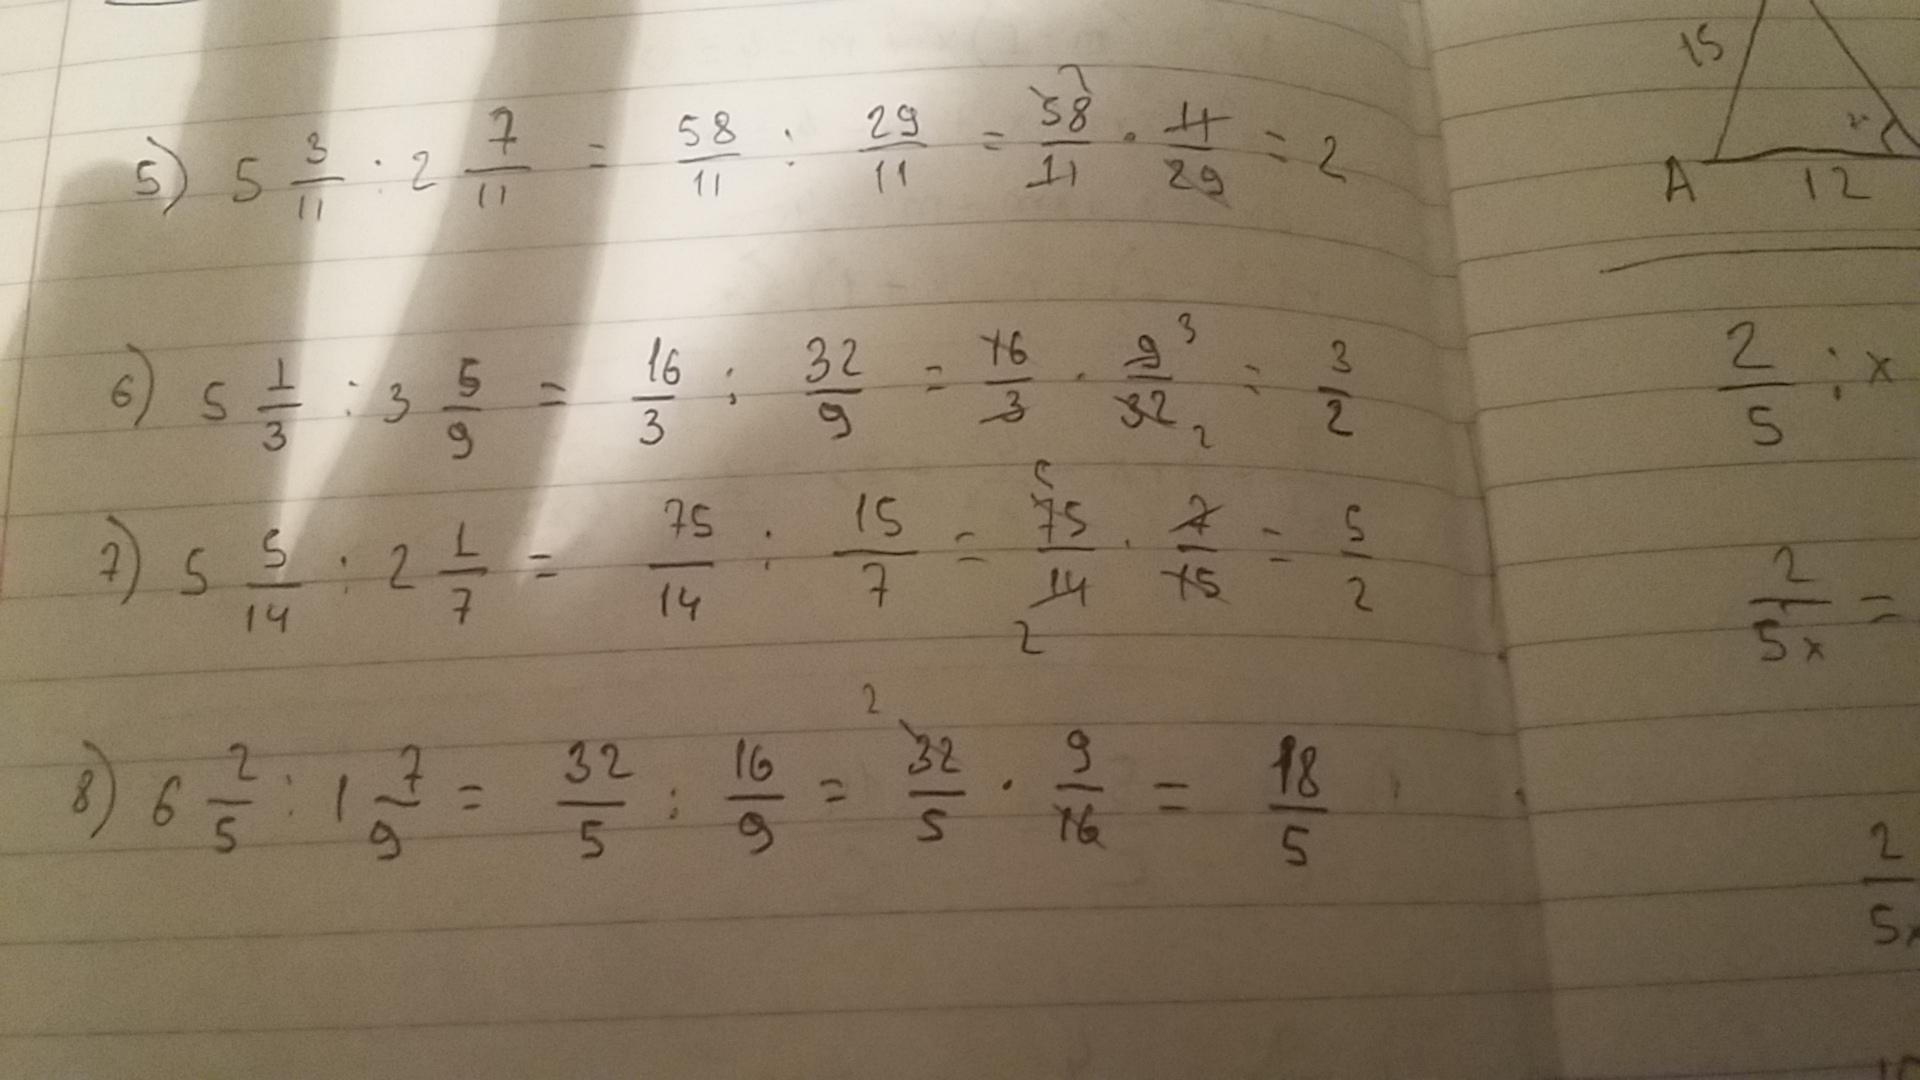 5) 5 3/11 : 2 7/11 = 58/11 : 29/11 = 58/11 · 11/29 = 2
6) 5 1/3 : 3 5/9 = 16/3 : 32/9 = 16/3 · 9 3/32 2 = 3/2
7) 5 5/14 : 2 1/7 = 75/14 : 15/7 = 5 75/14 2 · 7/15 = 5/2
8) 6 2/5 : 1 7/9 = 32/5 : 16/9 = 2 32/5 · 9/16 = 18/5
15
A 12
2/5 : x
2/5x =
2/5x